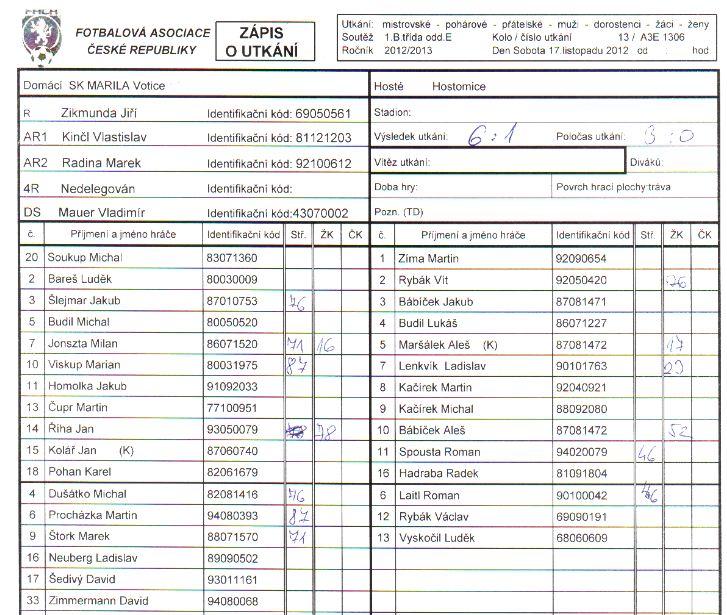 FOTBALOVÁ ASOCIACE
ČESKÉ REPUBLIKY
ZÁPIS
O UTKÁNÍ
Utkání: mistrovské - pohárové - přátelské - muži - dorostenci - žáci - ženy
Soutěž 1.B.třída odd.E Kolo / číslo utkání 13 / A3E 1306
Ročník 2012/2013 Den Sobota 17.listopadu 2012 od . hod.
Domácí SK MARILA Votice Hosté Hostomice
R Zikmunda Jiří Identifikační kód: 69050561 Stadion:
AR1 Kinčl Vlastislav Identifikační kód: 81121203 Výsledek utkání: 6:1 Poločas utkání: 3:0
AR2 Radina Marek Identifikační kód: 92100612 Vítěz utkání: Diváků:
4R Nedelegován Identifikační kód: Doba hry: Povrch hrací plochy tráva
DS Mauer Vladimír Identifikační kód:43070002 Pozn. (TD)
č. Příjmení a jméno hráče Identifikační kód Stř. ŽK ČK č. Příjmení a jméno hráče Identifikační kód Stř. ŽK ČK
20 Soukup Michal 83071360 1 Zíma Martin 92090654
2 Bareš Luděk 80030009 2 Rybák Vít 92050420 76
3 Šlejmar Jakub 87010753 76 3 Bábíček Jakub 87081471
5 Budil Michal 80050520 4 Budil Lukáš 86071227
7 Jonszta Milan 86071520 71 16 5 Maršálek Aleš (K) 87081472 17
10 Viskup Marian 80031975 87 7 Lenkvík Ladislav 90101763 23
11 Homolka Jakub 91092033 8 Kačírek Martin 92040921
13 Čupr Martin 77100951 9 Kačírek Michal 88092080
14 Říha Jan 93050079 78 10 Bábíček Aleš 87081472 52
15 Kolář Jan (K) 87060740 11 Spousta Roman 94020079 46
18 Pohan Karel 82061679 16 Hadraba Radek 81091804
4 Dušátko Michal 82081416 76 6 Laitl Roman 90100042 46
6 Procházka Martin 94080393 87 12 Rybák Václav 69090191
9 Štork Marek 88071570 71 13 Vyskočil Luděk 68060609
16 Neuberg Ladislav 89090502
17 Šedivý David 93011161
33 Zimmermann David 94080068